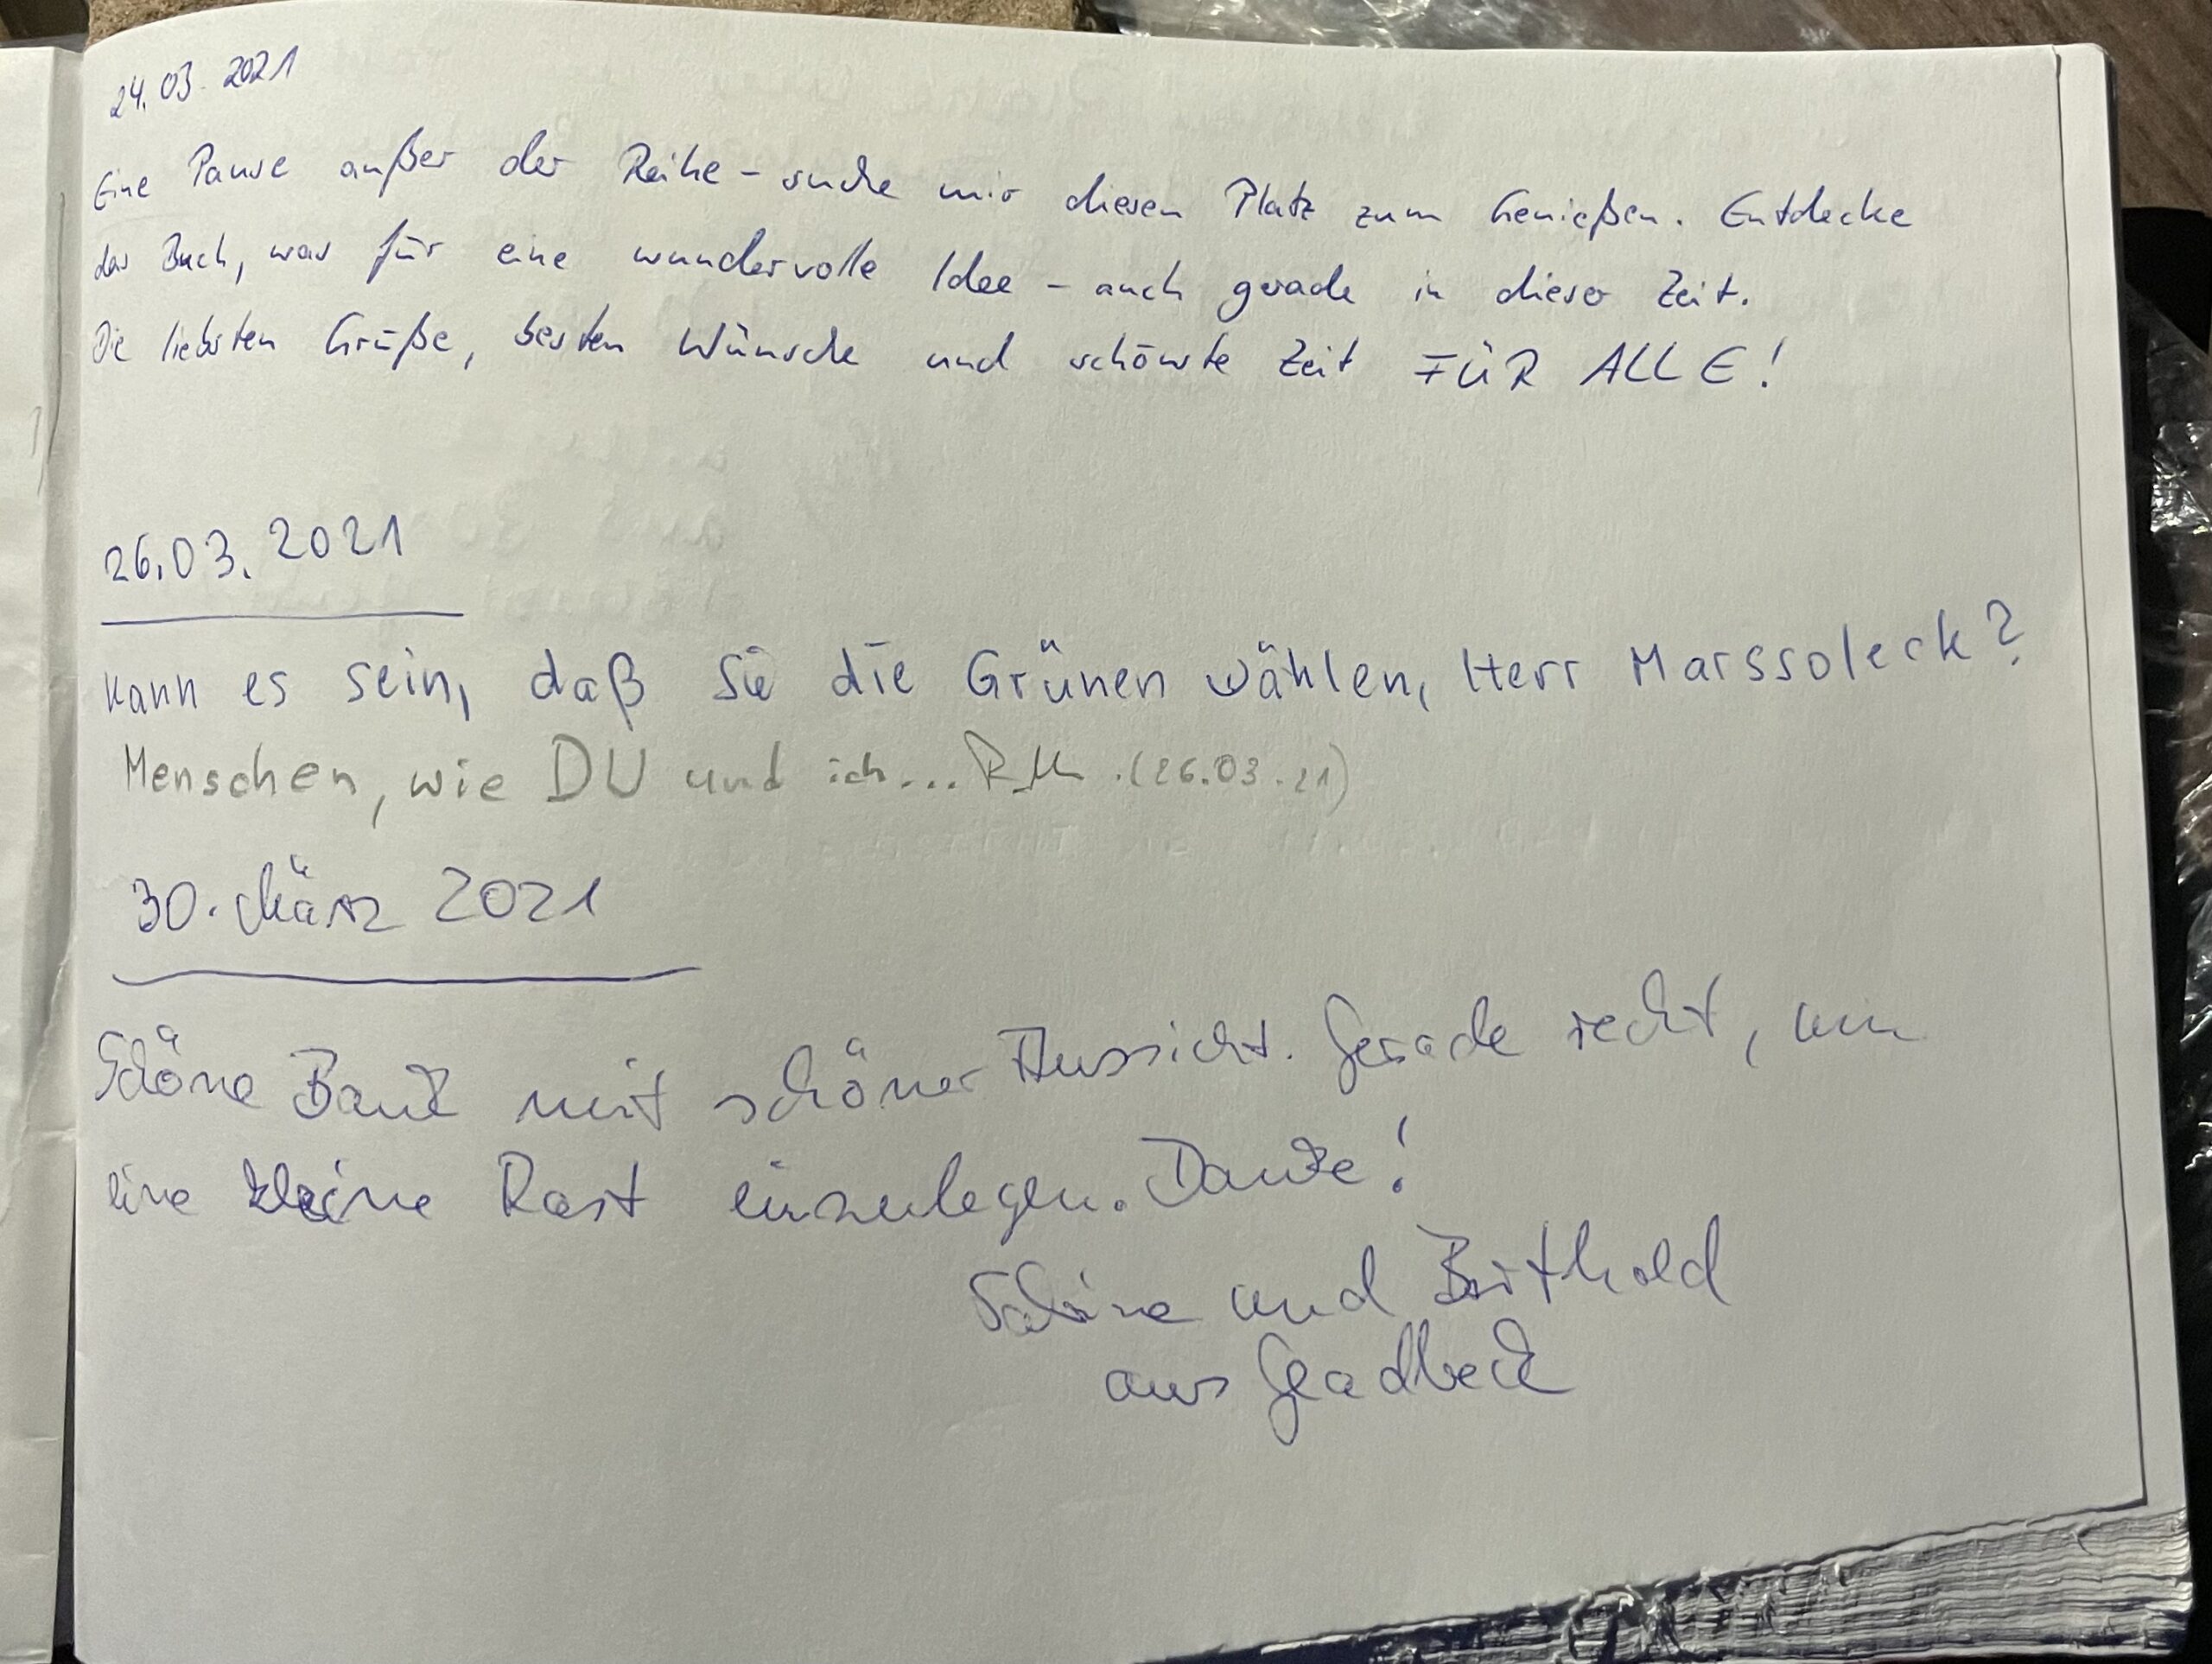 24.03.2021
Eine Pause außer der Reihe - suche mir diesen Platz zum Genießen. Entdecke
das Buch, was für eine wundervolle Idee - auch gerade in dieser Zeit.
Die liebsten Grüße, besten Wünsche und schönste Zeit FÜR ALLE!
26.03.2021
Kann es sein, daß Sie die Grünen wählen, Herr Marssoleck?
Menschen, wie DU und ich... (26.03.21)
30. März 2021
Schöne Bank mit schöner Aussicht. Gerade recht, um
eine kleine Rast einzulegen. Danke!
Sabine und Berthold
aus Gladbeck